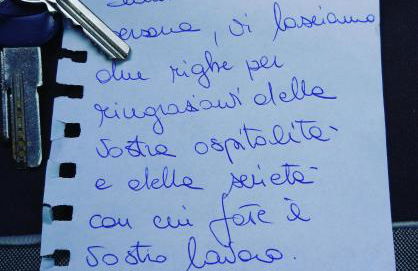 persona, vi lasciamo
due righe per
ringraziarvi della
vostra ospitalità
e della serietà
con cui fate il
vostro lavoro.